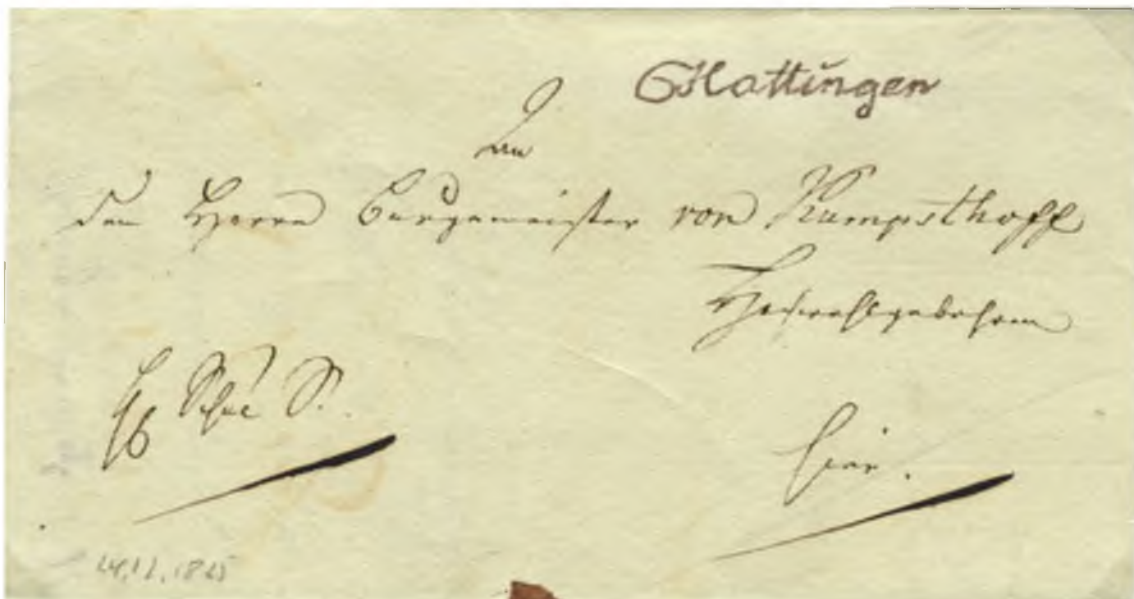 Hattingen
An
den Herrn Burgemeister von Kumpsthoff
Hochwohlgebohren
hier.